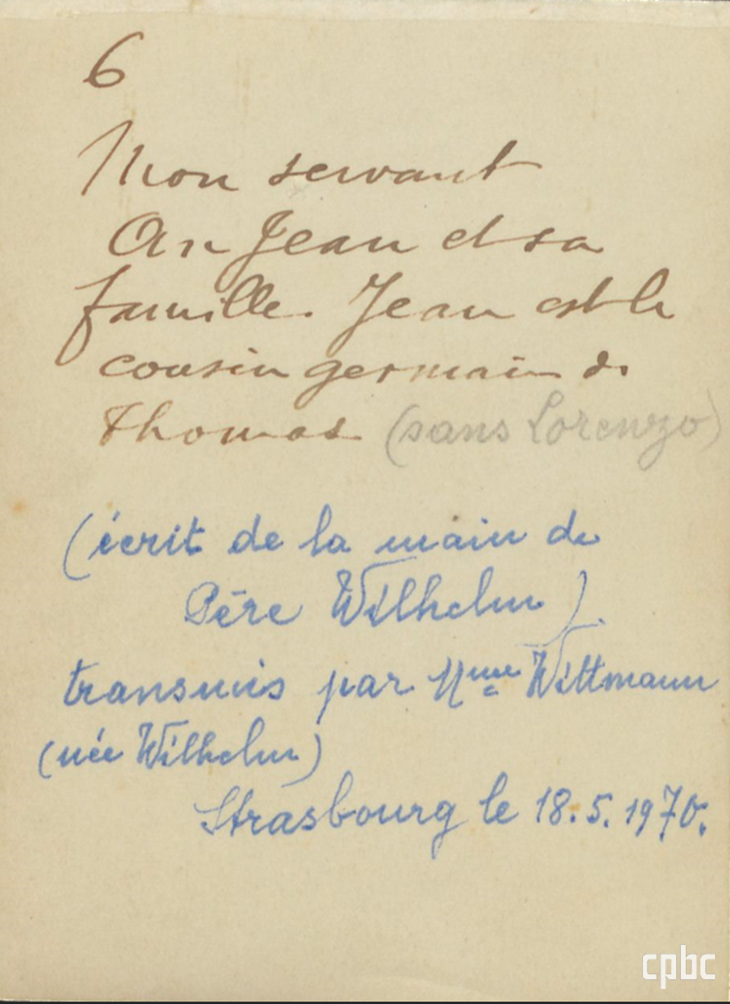 6
Mon servant
An Jean et sa
famille. Jean est le
cousin germain de
Thomas (sans Lorenzo)
(écrit de la main de
Père Wilhelm).
transmis par Mme Wittmann
(née Wilhelm)
Strasbourg le 18.5.1970.
cpbc